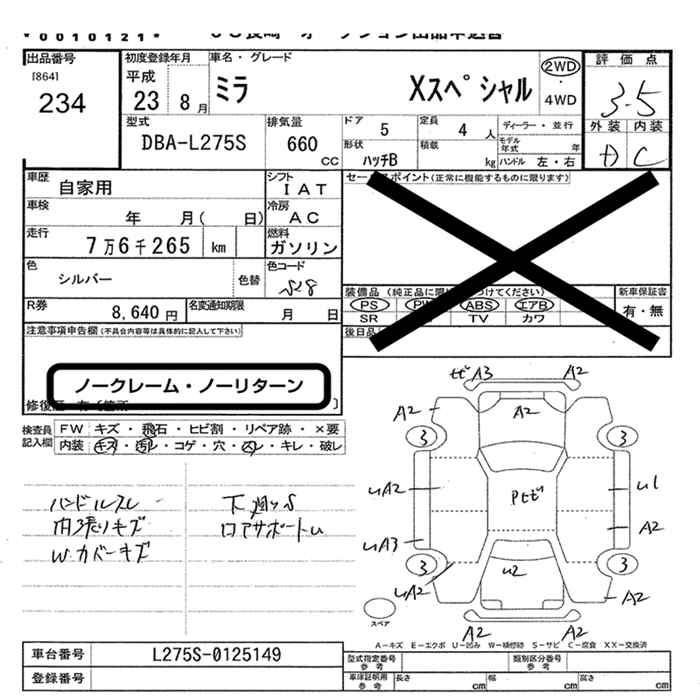 *0010121*
出品番号
[864]
234
初度登録年月
平成
23年 8月
車名・グレード
ミラ Xスペシャル
2WD
・
4WD
評価点
3.5
外装 内装
D C
型式
DBA-L275S
排気量
660
CC
ドア
5
定員
4 人
ディーラー・並行
形状
ハッチB
積載
kg
モデル年式 年
ハンドル 左・右
車歴
自家用
シフト
IAT
車検
年 月( 日)
冷房
AC
走行
7万6千265 km
燃料
ガソリン
色
シルバー
色替
色コード
S28
R券
8,640 円
名変通知期限
月 日
(正常に機能するものに限ります)
装備品
PS
ABS
エアB
SR
TV
カワ
新車保証書
有・無
後日品
注意事項申告欄 (不具合内容等は具体的に記入して下さい)
ノークレーム・ノーリターン
検査員
記入欄
FW キズ・飛石・ヒビ割・リペア跡・×要
内装 キズ・汚レ・コゲ・穴・スレ・キレ・破レ
ハンドルスレ
内張りキズ
W.カバーキズ
下廻りS
ロアサポートU
ﾋﾞ A3 A2
A2 A2
3 3
UA2 Pﾋﾞ U1
A2
UA3
3 3
UA2 U2 A2
A2 A2
スペア
A－キズ E－エクボ U－凹み W－補修跡 S－サビ C－腐食 XX－交換済
車台番号
L275S-0125149
登録番号
型式指定番号
参考
類別区分番号
参考
車庫証明用
参考
長さ cm
幅 cm
高さ cm